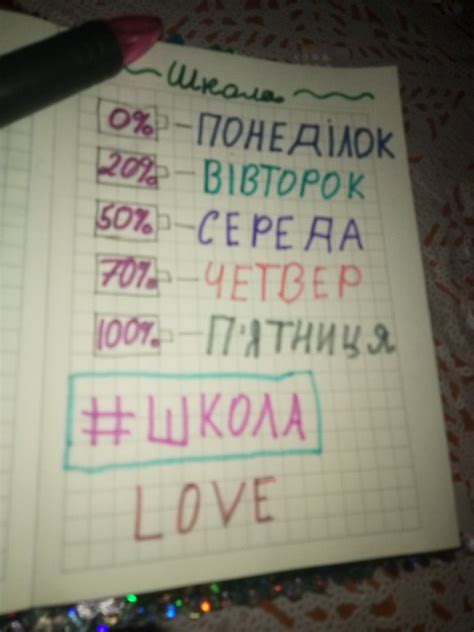 Школа
0% - ПОНЕДІЛОК
20% - ВІВТОРОК
50% - СЕРЕДА
70% - ЧЕТВЕР
100% - П'ЯТНИЦЯ
#ШКОЛА
LOVE